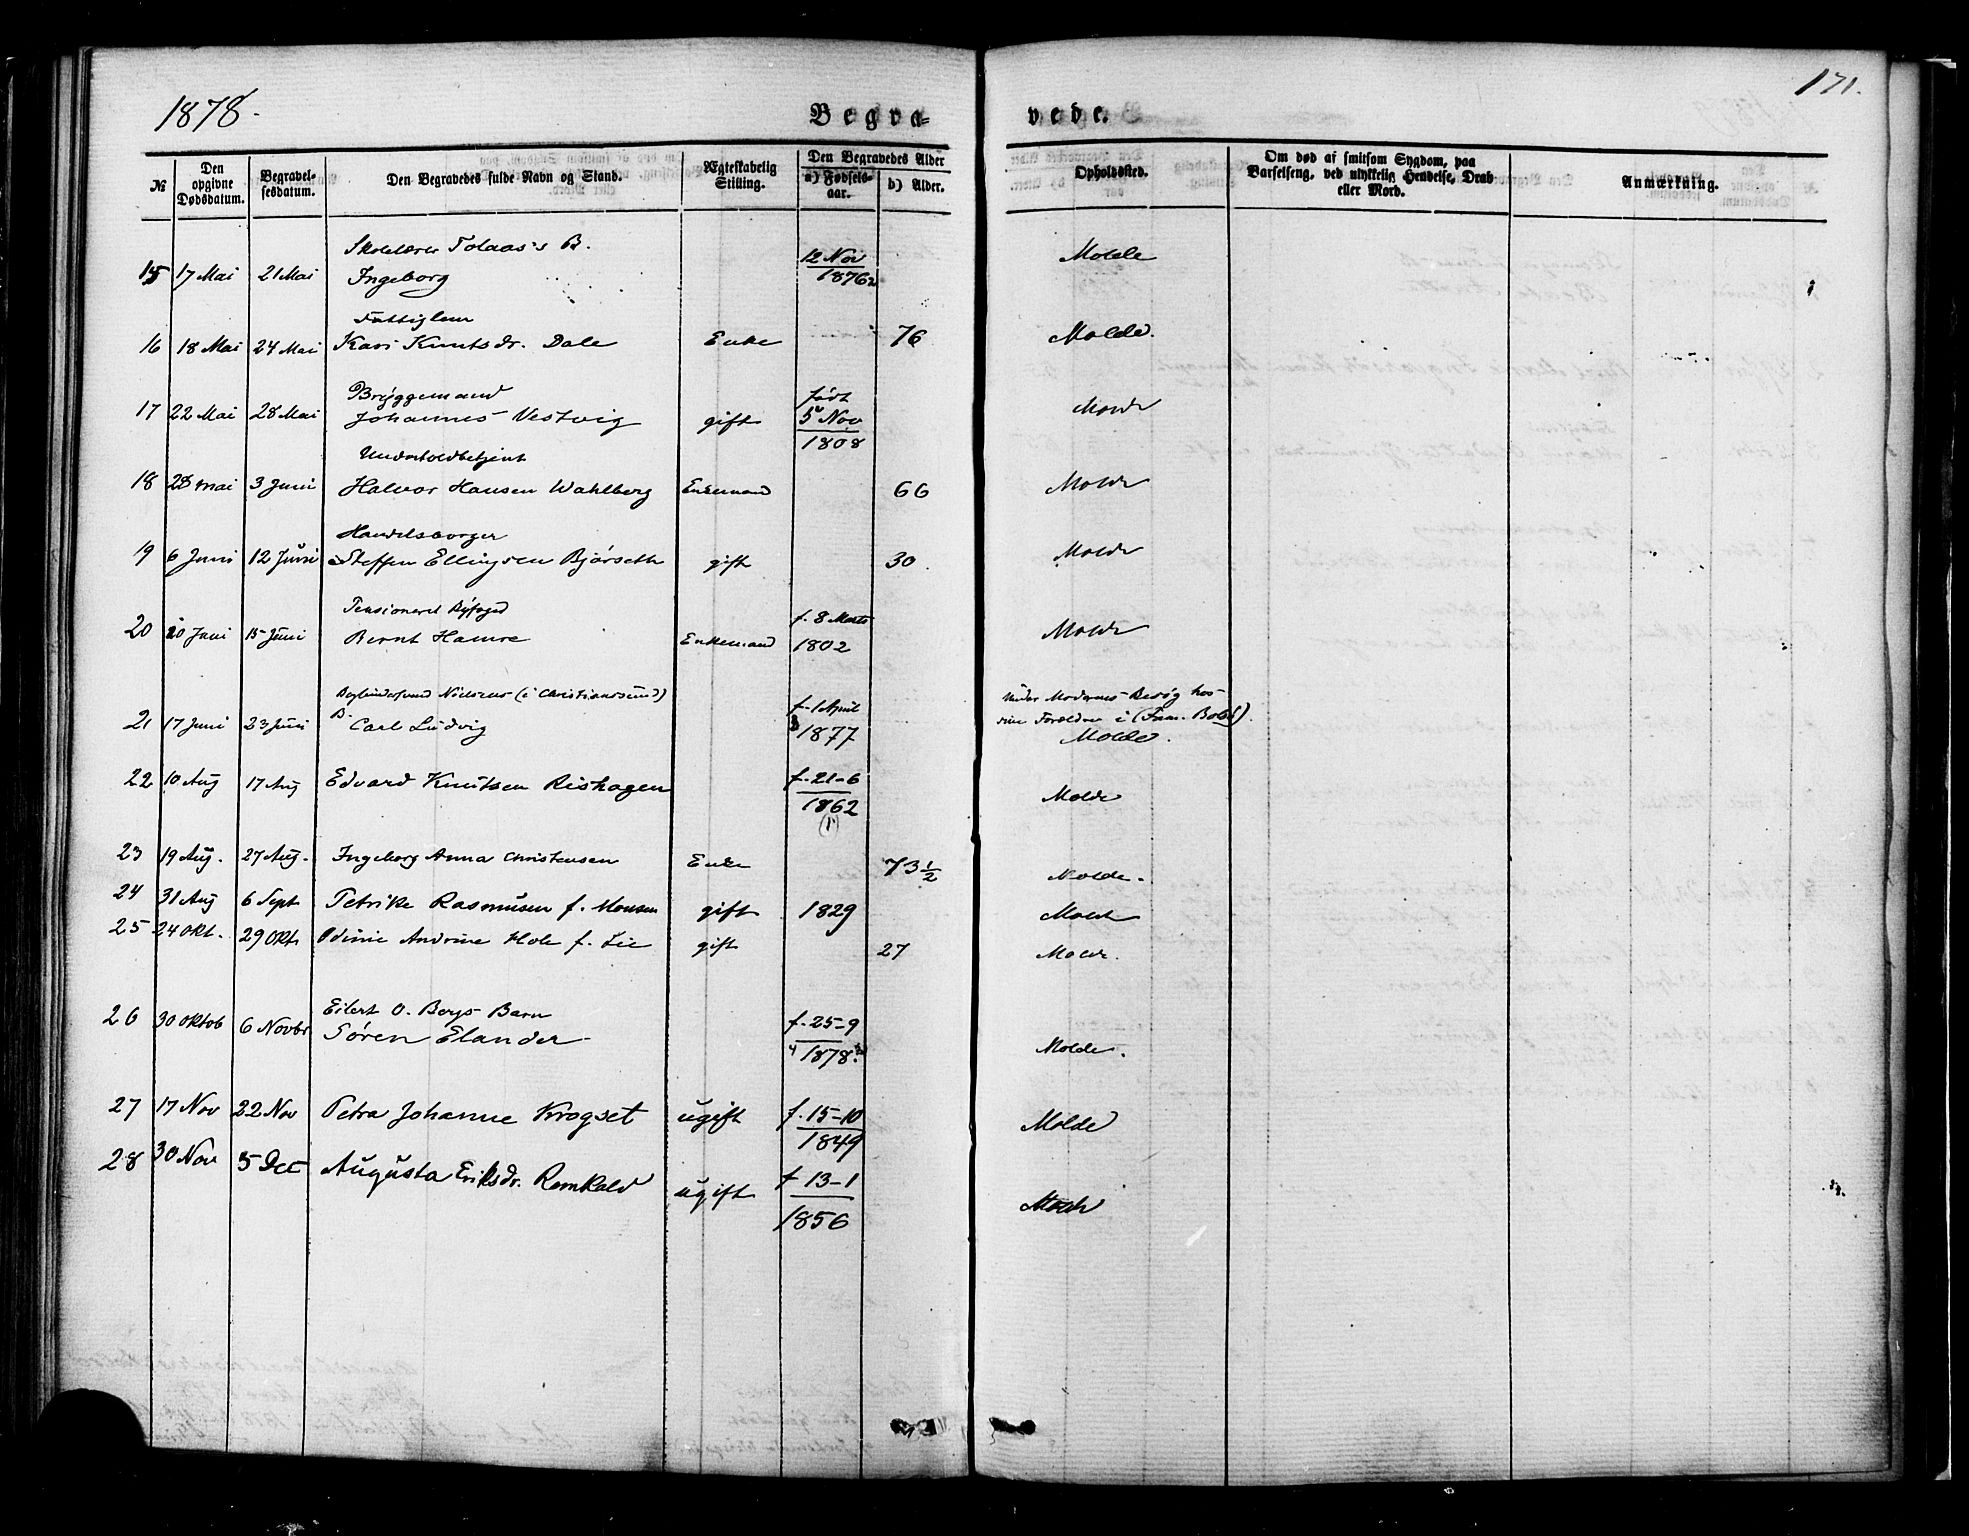 1878.
Begra=
vede.
171.
№
Den opgivne Dødsdatum.
Begravelsesdatum.
Den Begravedes fulde Navn og Stand.
Ægteskabelig Stilling.
Den Begravedes Alder
a) Fødselsaar.
b) Alder.
Opholdssted.
Om død af smitsom Sygdom, paa Barselseng, ved ulykkelig Hendelse, Drab eller Mord.
Anmærkning.
Skolelærer Tolaas's B.
15 17 Mai 21 Mai Ingeborg 12 Nov 1876 Molde
Fattiglem
16 18 Mai 24 Mai Kari Knutsdr. Dale Enke 76 Molde.
Bryggemand
17 22 Mai 28 Mai Johannes Vestvig gift født 5 Nov 1808 Molde
Underholdbetjent
18 28 Mai 3 Juni Halvor Hansen Wahlberg Enkemand 66 Molde
Handelsborger
19 6 Juni 12 Juni Steffen Ellingsen Bjørseth gift 30. Molde
Pensioneret Byfoged
20 10 Juni 15 Juni Bernt Hamre Enkemand f. 8 Marts 1802 Molde
Nielsens (i Christianssund)
B.
21 17 Juni 23 Juni Carl Ludvig f. 1 April 1877
Under Moderens Besøg hos
sine Forældre i (Fam. Bolt).
Molde.
22 10 Aug 17 Aug Edvard Knutsen Rishagen f. 21-6 1862 Molde
23 19 Aug. 27 Aug. Ingeborg Anna Christensen Enke 73 ½ Molde.
24 31 Aug 6 Sept Petrike Rasmusen f. Monsen gift 1829 Molde
25 24 Okt. 29 Okt Odinie Andrine Hole f. Lie gift 27 Molde.
Eilert O. Bergs Barn
26 30 Oktob 6 Novbr Søren Elander f. 25-9 1878 Molde.
27 17 Nov 22 Nov Petra Johanne Krogset ugift f. 15-10 1849 Molde
28 30 Nov 5 Dec Augusta Eriksdr. Remkald ugift f 13-1 1856 Molde